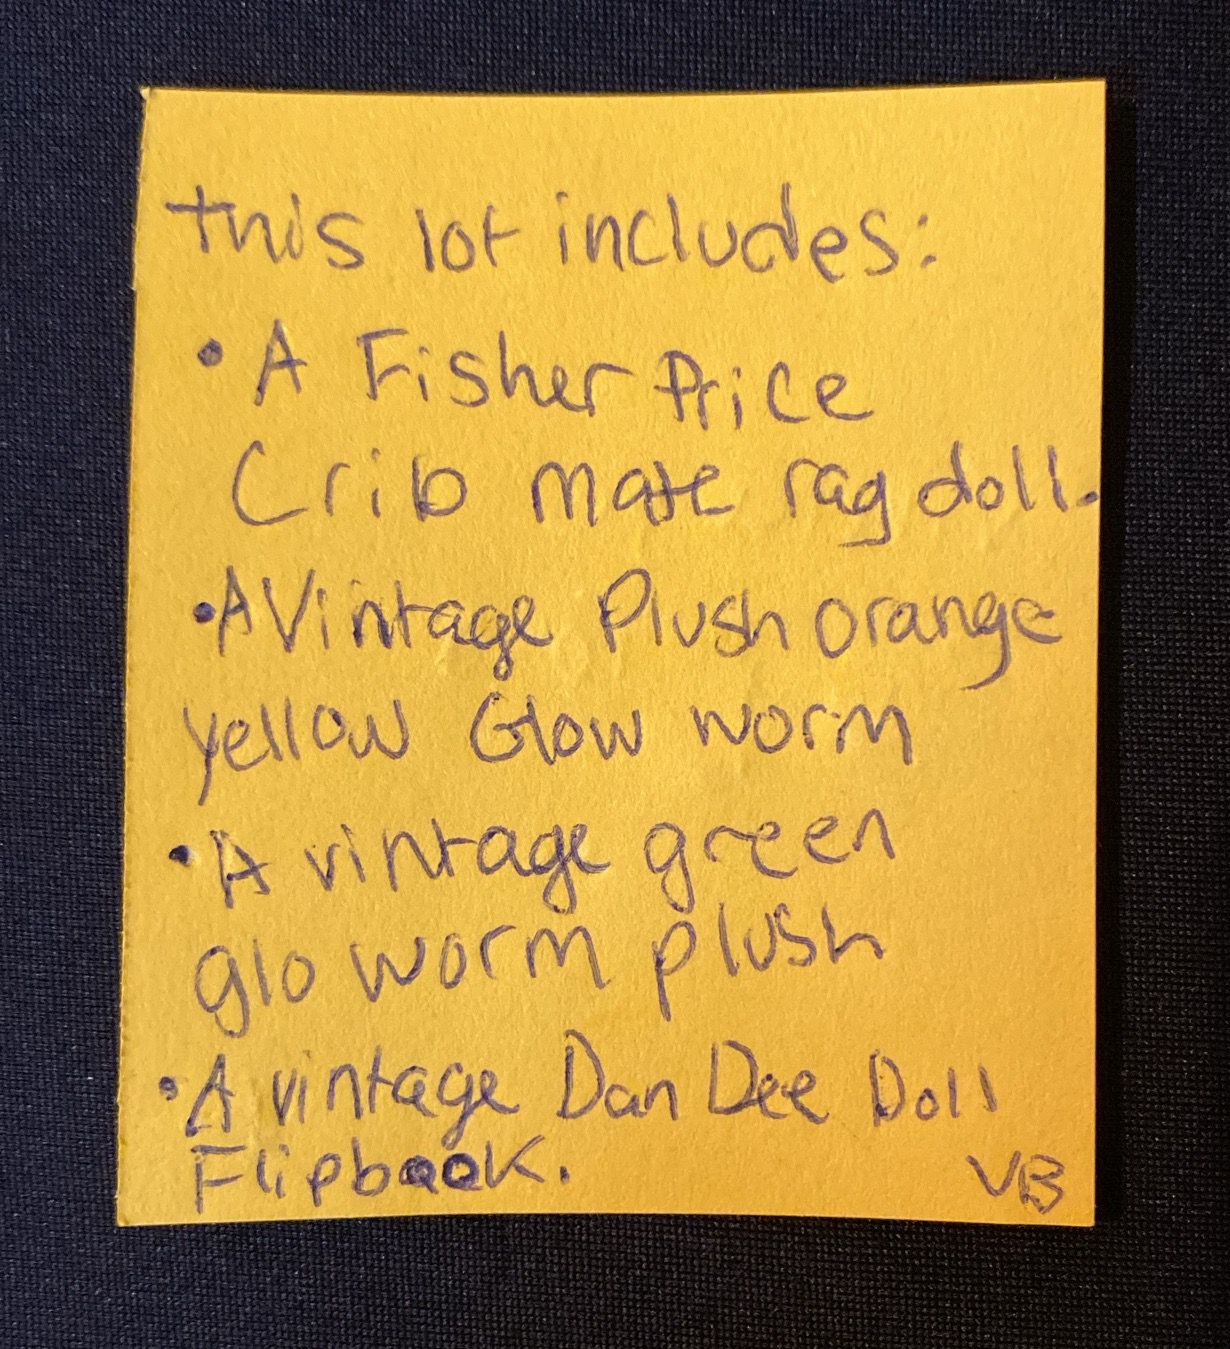 this lot includes:
• A Fisher Price
Crib mate rag doll.
• A Vintage Plush orange
yellow Glow worm
• A vintage green
glo worm plush
• A vintage Dan Dee Doll
Flipbook.
VB